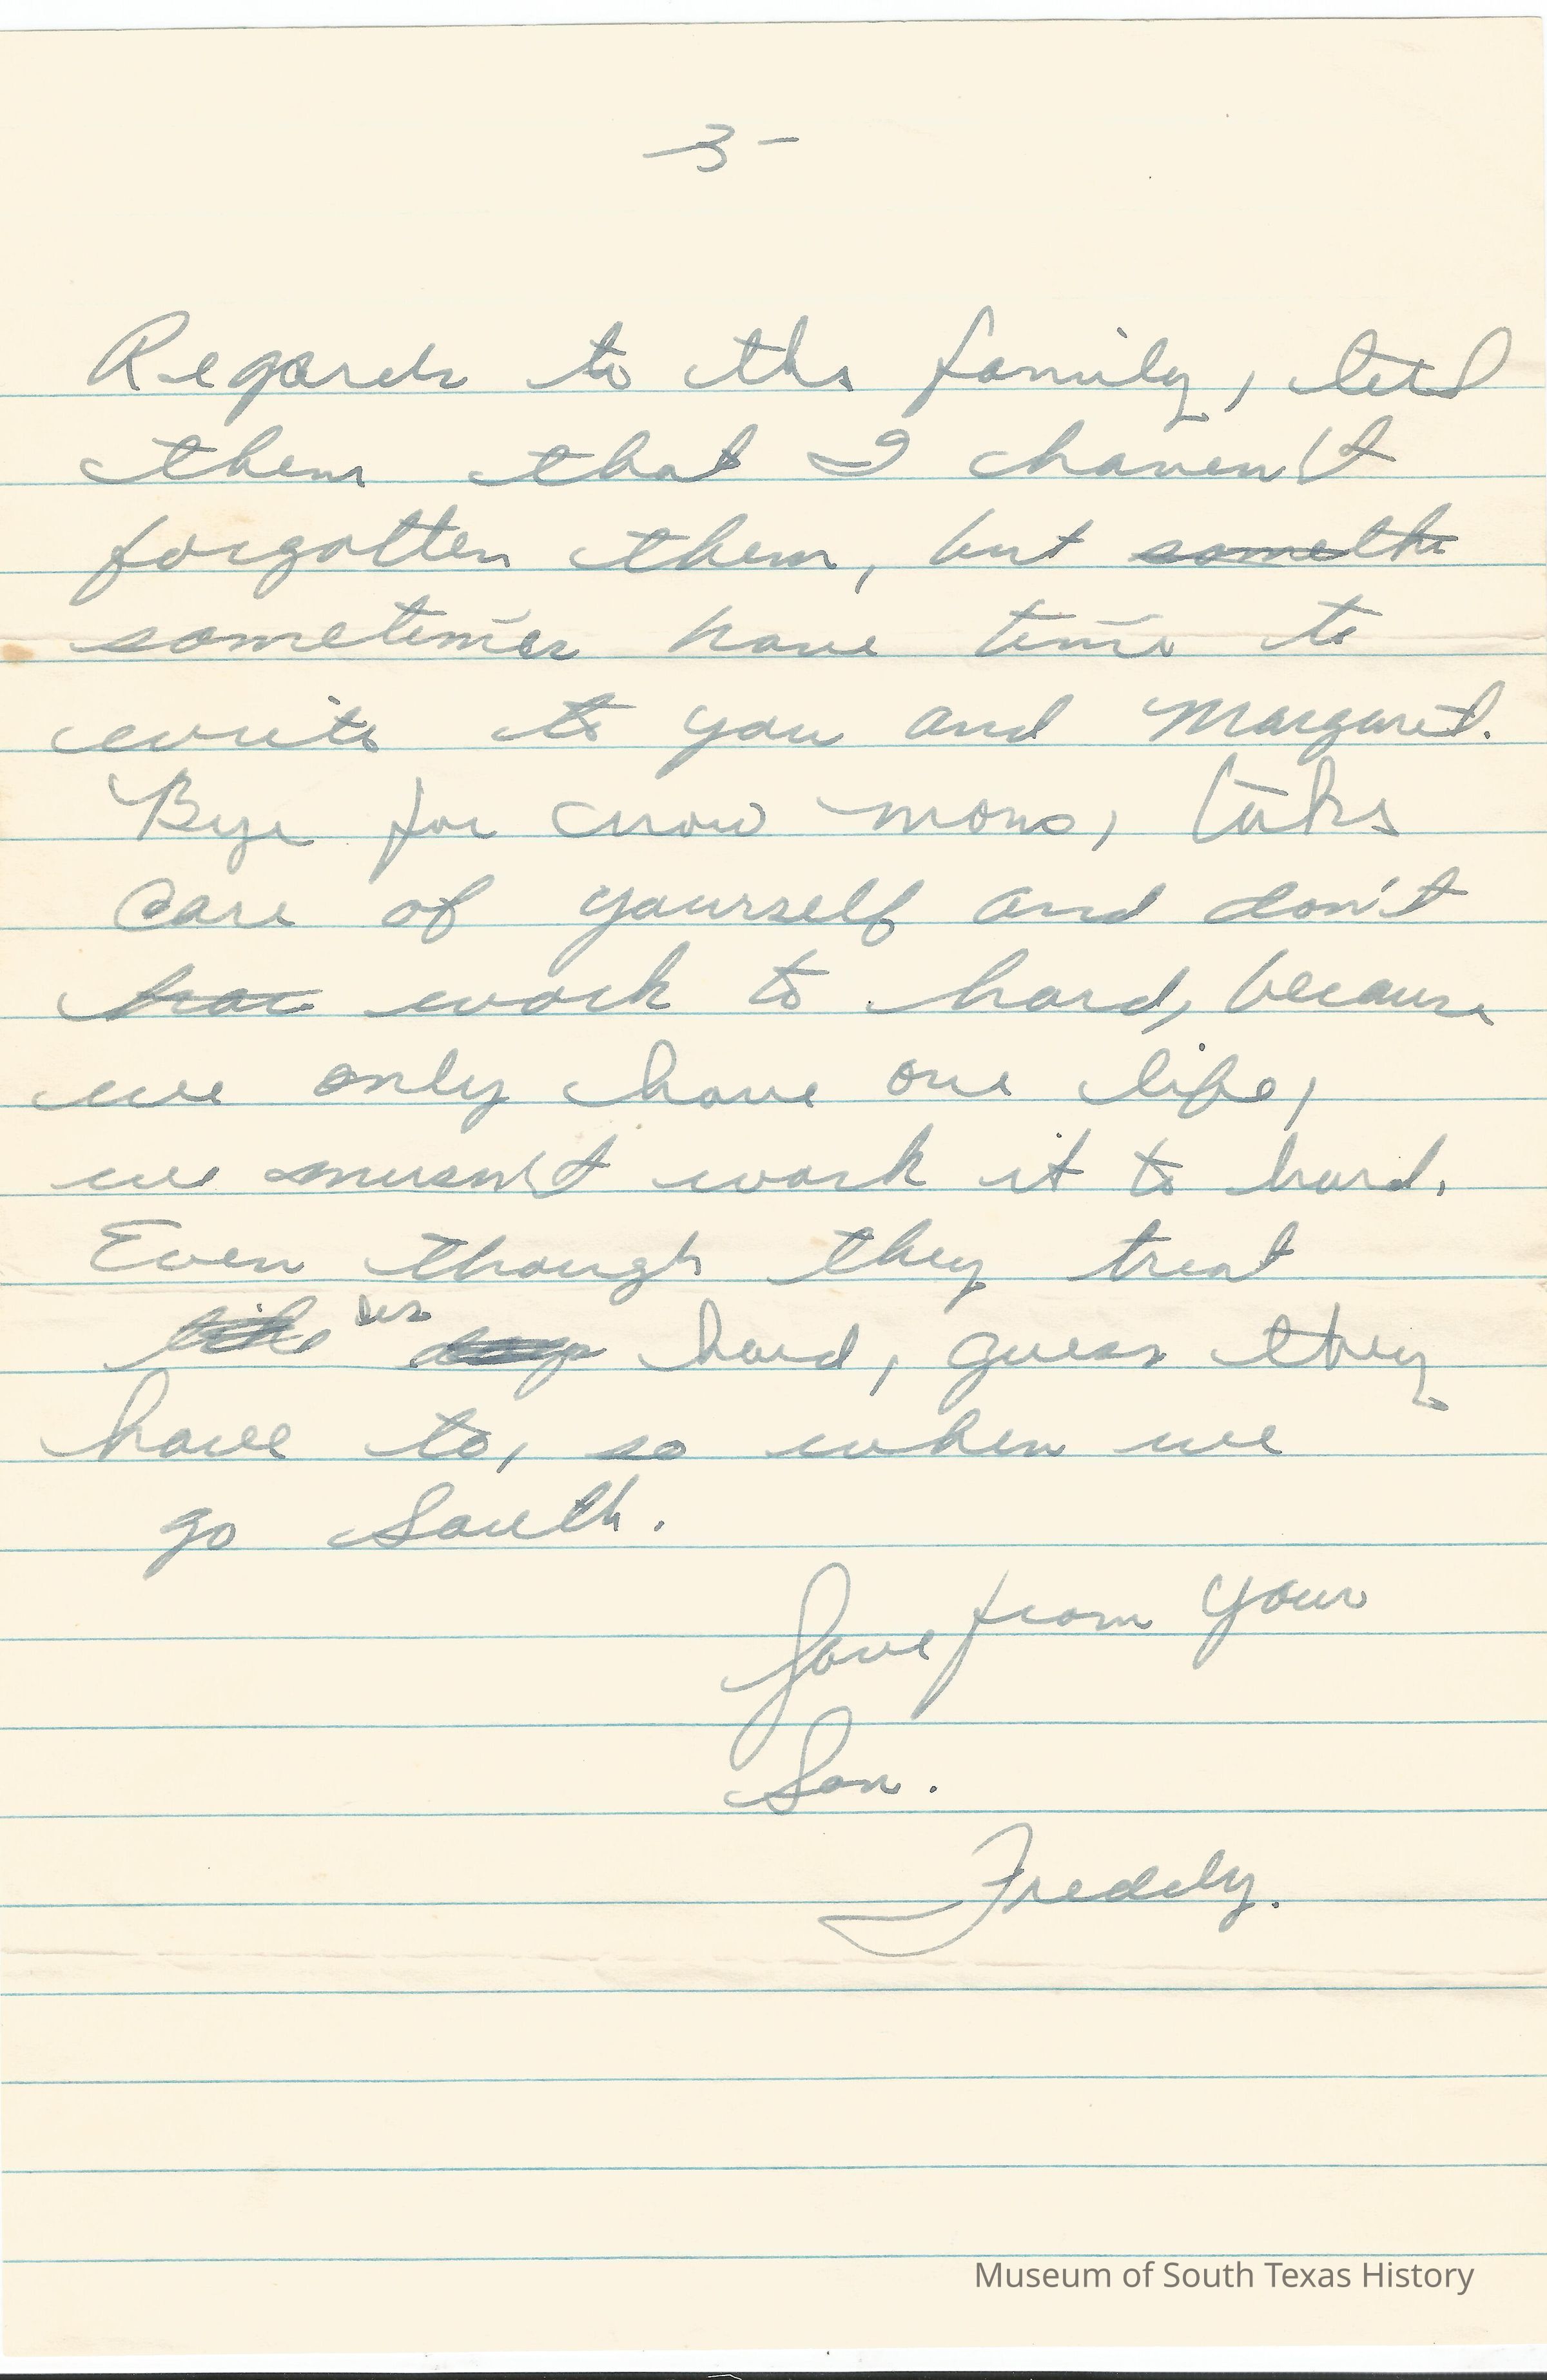 3-
Regards to the family, tell
them that I haven't
forgotten them, but somethe
sometimes have time to
write to you and Margaret.
Bye for now mom, take
care of yourself and don't
work to hard, because
we only have one life,
we musn't work it to hard.
Even though they treat
like us hard, guess they
have to, so when we
go South.
Love from your
Son.
Freddy.
Museum of South Texas History